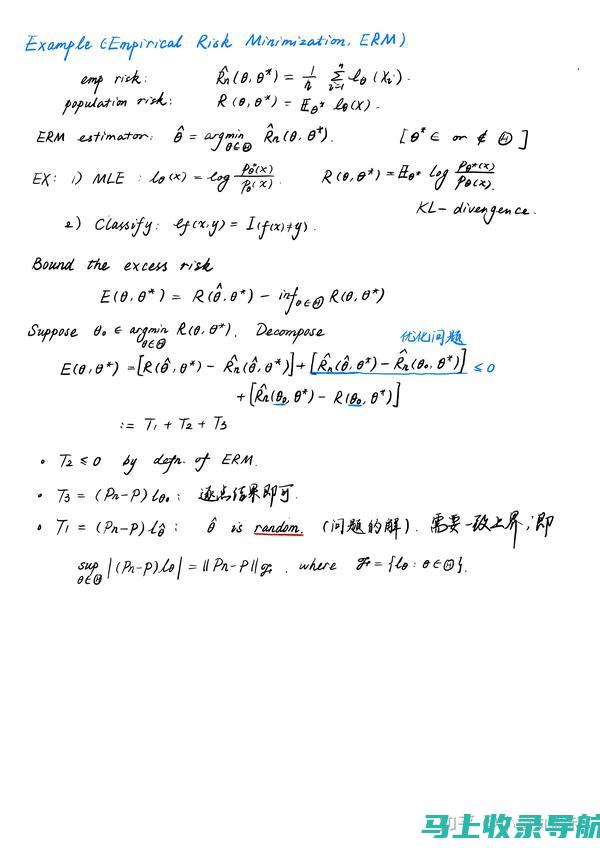 Example (Empirical Risk Minimization, ERM)
emp risk: R̂n(θ, θ*) = 1/n Σ_{i=1}^n ℓθ(Xi).
population risk: R(θ, θ*) = 𝔼θ* ℓθ(X).
ERM estimator: θ̂ = argmin_{θ∈Θ} R̂n(θ, θ*). [θ* ∈ or ∉ Θ]
EX: 1) MLE: ℓθ(x) = log pθ*(x)/pθ(x). R(θ, θ*) = 𝔼θ* log pθ*(x)/pθ(x).
KL-divergence.
2) Classify: ℓf(x,y) = I(f(x)≠y).
Bound the excess risk
E(θ, θ*) = R(θ̂, θ*) - inf_{θ∈Θ} R(θ, θ*)
Suppose θ0 ∈ argmin_{θ∈Θ} R(θ, θ*). Decompose 优化问题
E(θ, θ*) = [R(θ̂, θ*) - R̂n(θ̂, θ*)] + [R̂n(θ̂, θ*) - R̂n(θ0, θ*)] ≤ 0
+ [R̂n(θ0, θ*) - R(θ0, θ*)]
:= T1 + T2 + T3
• T2 ≤ 0 by defn. of ERM.
• T3 = (Pn-P)ℓθ0: 逐点结果即可.
• T1 = (Pn-P)ℓθ̂: θ̂ is random. (问题的解). 需要一致上界, 即
sup_{θ∈Θ} |(Pn-P)ℓθ| = ||Pn-P||ℱ, where ℱ = {ℓθ: θ∈Θ}.
马上收录导航